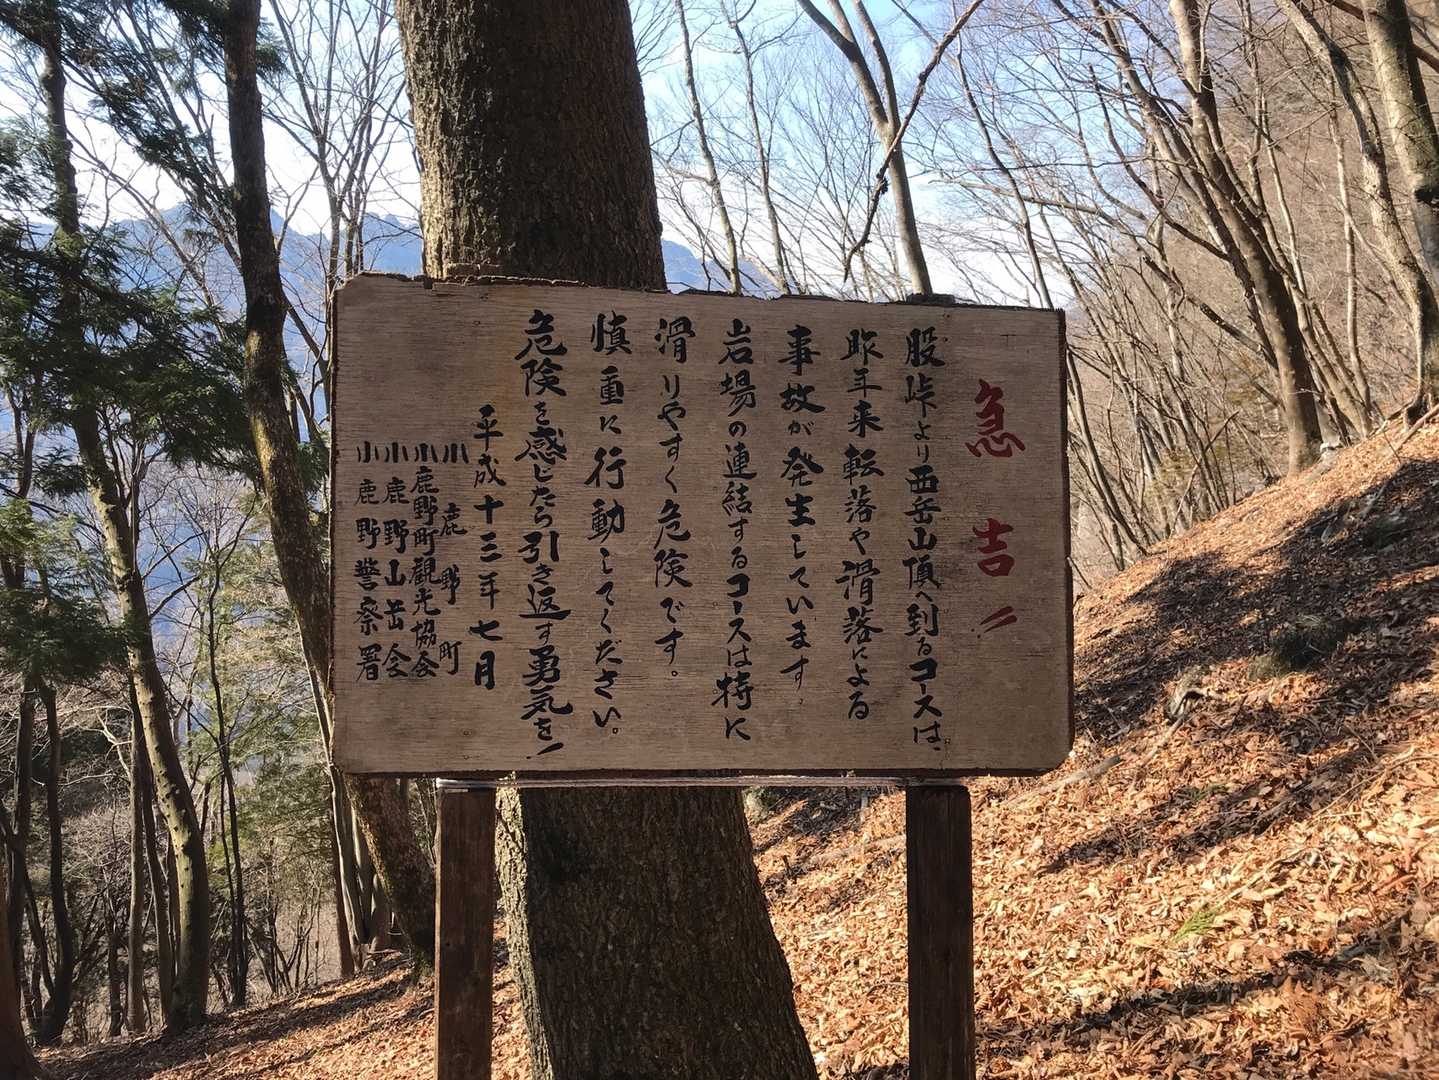 急告!!
股峠より西岳山頂へ到るコースは、
昨年来転落や滑落による
事故が発生しています。
岩場の連結するコースは特に
滑りやすく危険です。
慎重に行動してください。
危険を感じたら引き返す勇気を!
平成十三年七月
小鹿野町
小鹿野町観光協会
小鹿野山岳会
小鹿野警察署